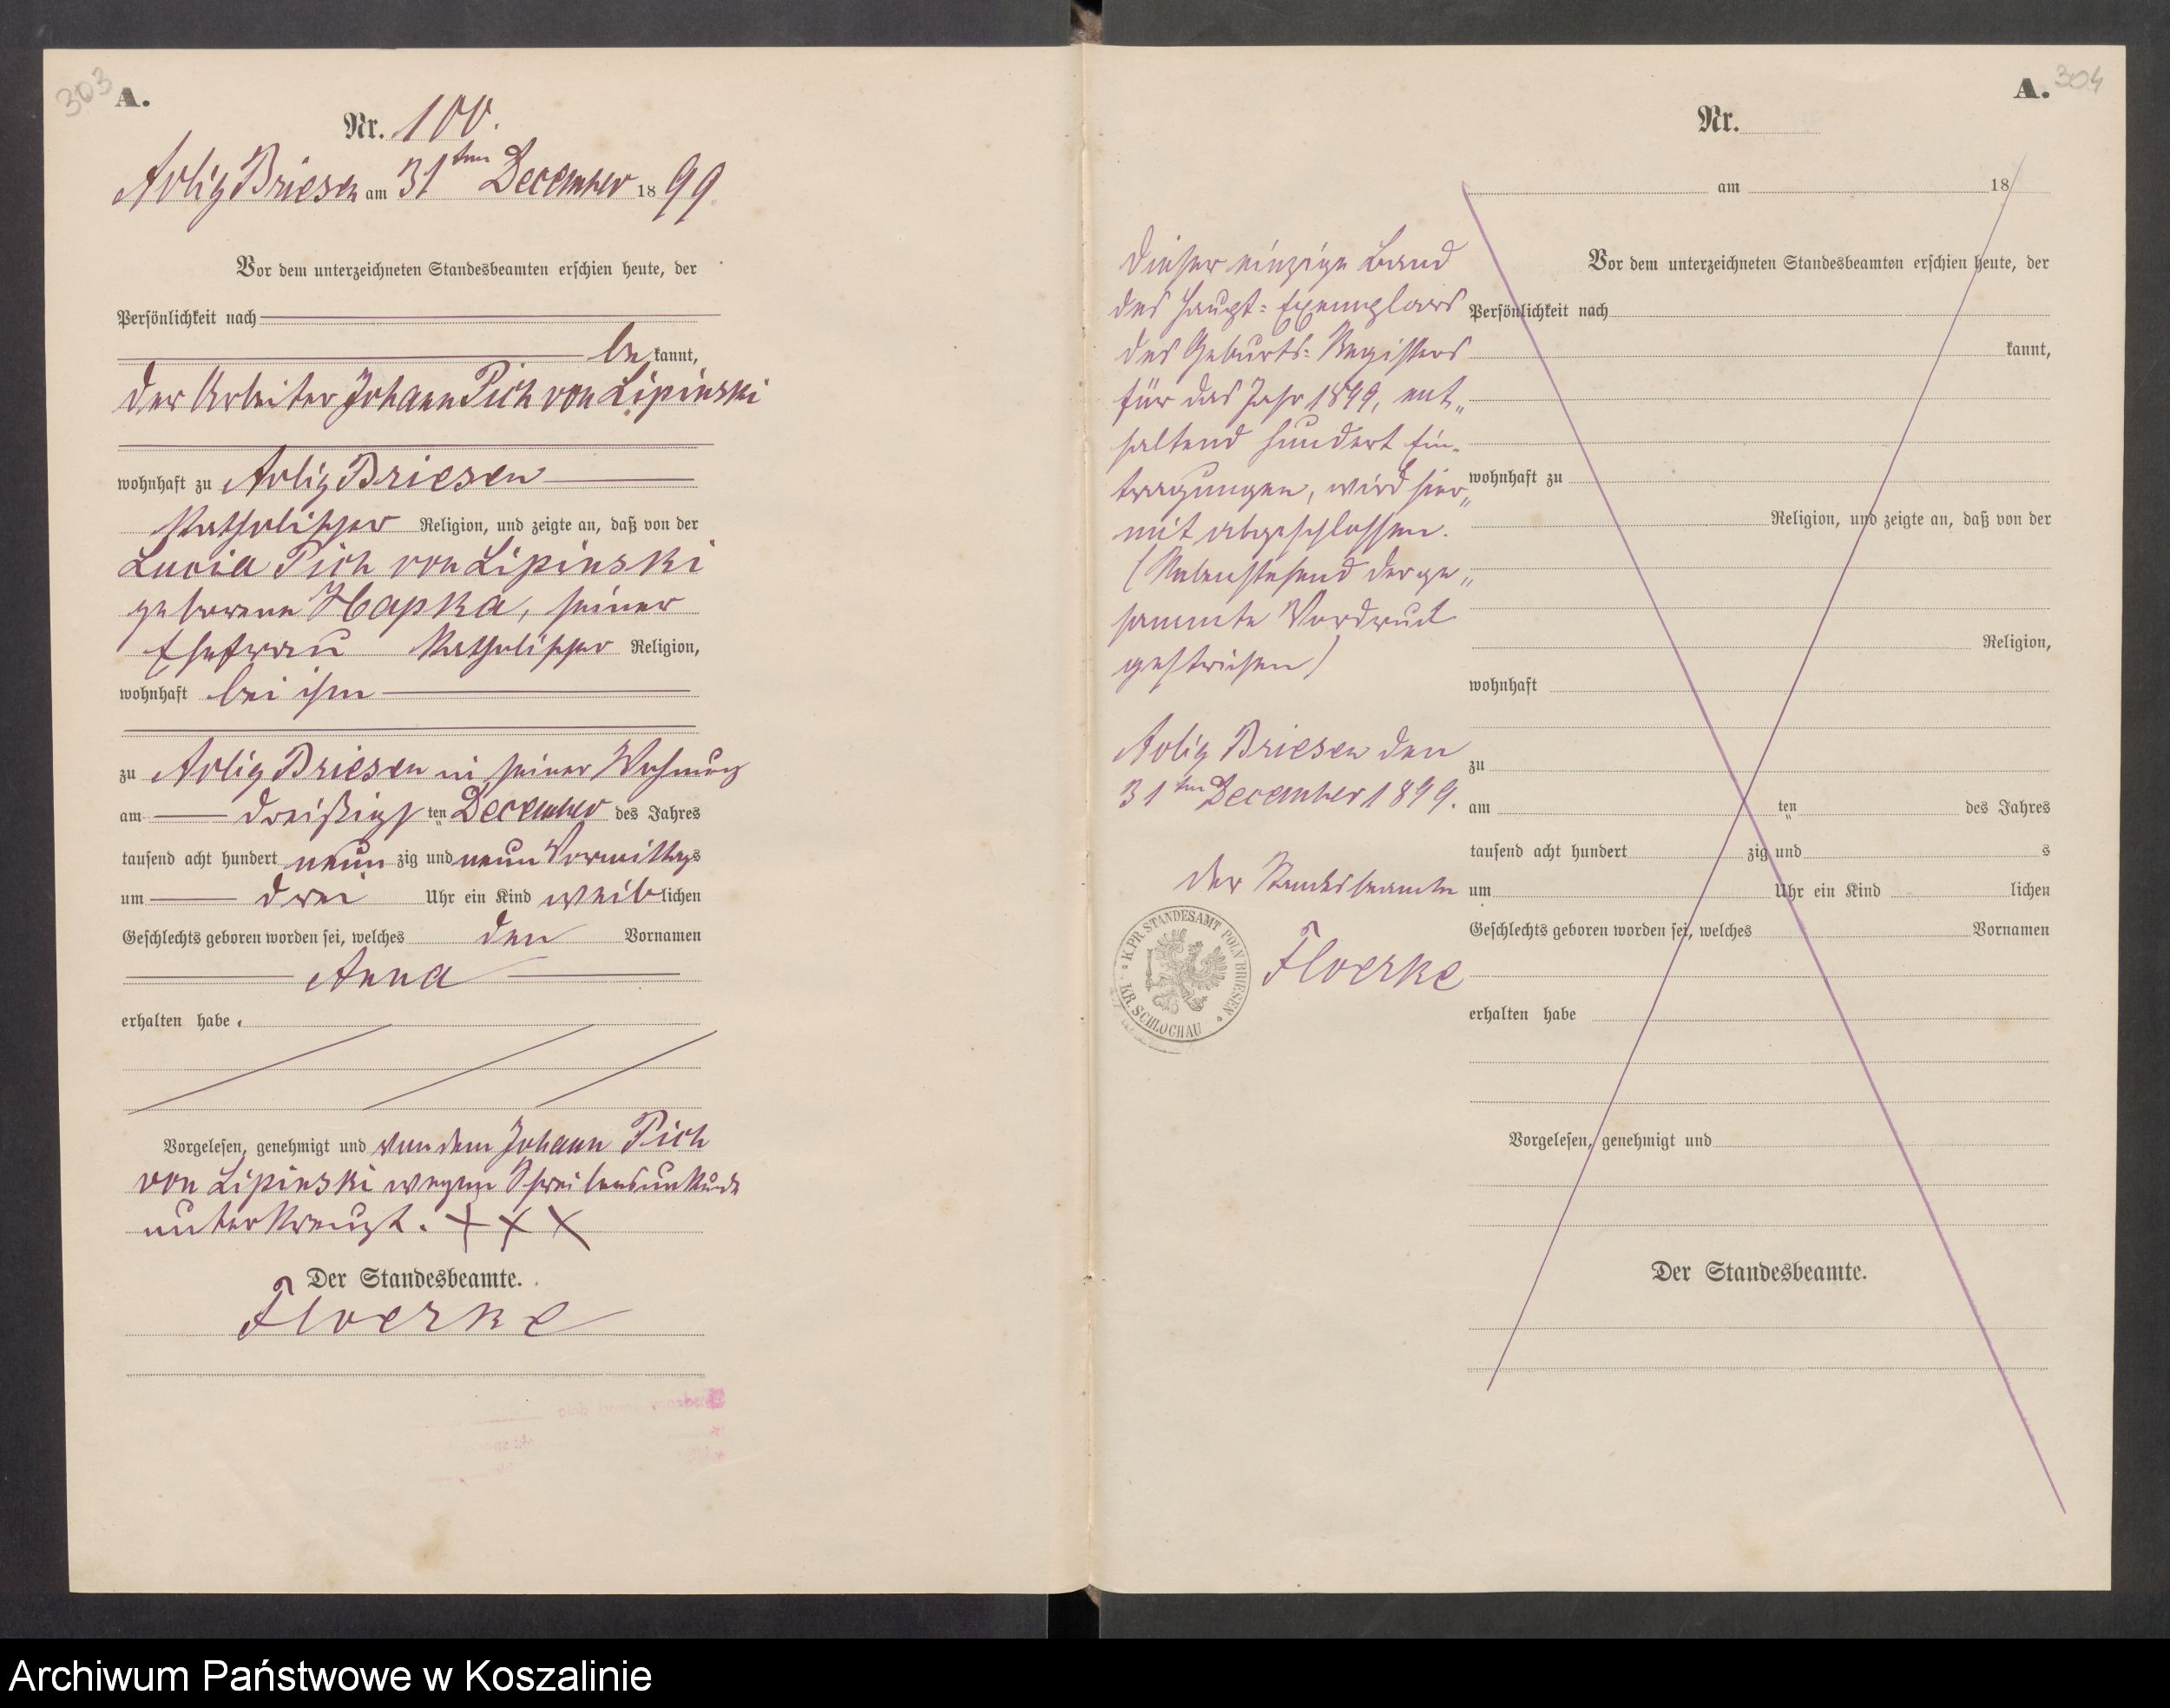 303
A.
Nr. 100.
Adlig Briesen am 31ten December 1899.
Vor dem unterzeichneten Standesbeamten erschien heute, der
Persönlichkeit nach
be kannt,
der Arbeiter Johann Pich von Lipinski
wohnhaft zu Adlig Briesen
katholischer Religion, und zeigte an, daß von der
Lucia Pich von Lipinski
geborene Hapka, seiner
Ehefrau katholischer Religion,
wohnhaft bei ihm
zu Adlig Briesen in seiner Wohnung
am dreißigsten December des Jahres
tausend acht hundert neun zig und neun Vormittags
um drei Uhr ein Kind weiblichen
Geschlechts geboren worden sei, welches den Vornamen
Anna
erhalten habe.
Vorgelesen, genehmigt und von dem Johann Pich
von Lipinski wegen Schreibensunkunde
unterkreuzt. + + +
Der Standesbeamte.
Floerke
dieser einzige Band
des Haupt-Exemplars
des Geburts-Registers
für das Jahr 1899, ent„
haltend hundert Ein-
tragungen, wird hier„
mit abgeschlossen.
(Nebenstehend der ge„
sammte Vordruck
gestrichen)
Adlig Briesen den
31ten December 1899.
der Standesbeamte
Floerke
* K. PR. STANDESAMT POLN BRIESEN *
KR. SCHLOCHAU
304
A.
Nr.
am 18
Vor dem unterzeichneten Standesbeamten erschien heute, der
Persönlichkeit nach
kannt,
wohnhaft zu
Religion, und zeigte an, daß von der
Religion,
wohnhaft
zu
am ten des Jahres
tausend acht hundert zig und s
um Uhr ein Kind lichen
Geschlechts geboren worden sei, welches Vornamen
erhalten habe
Vorgelesen, genehmigt und
Der Standesbeamte.
Archiwum Państwowe w Koszalinie